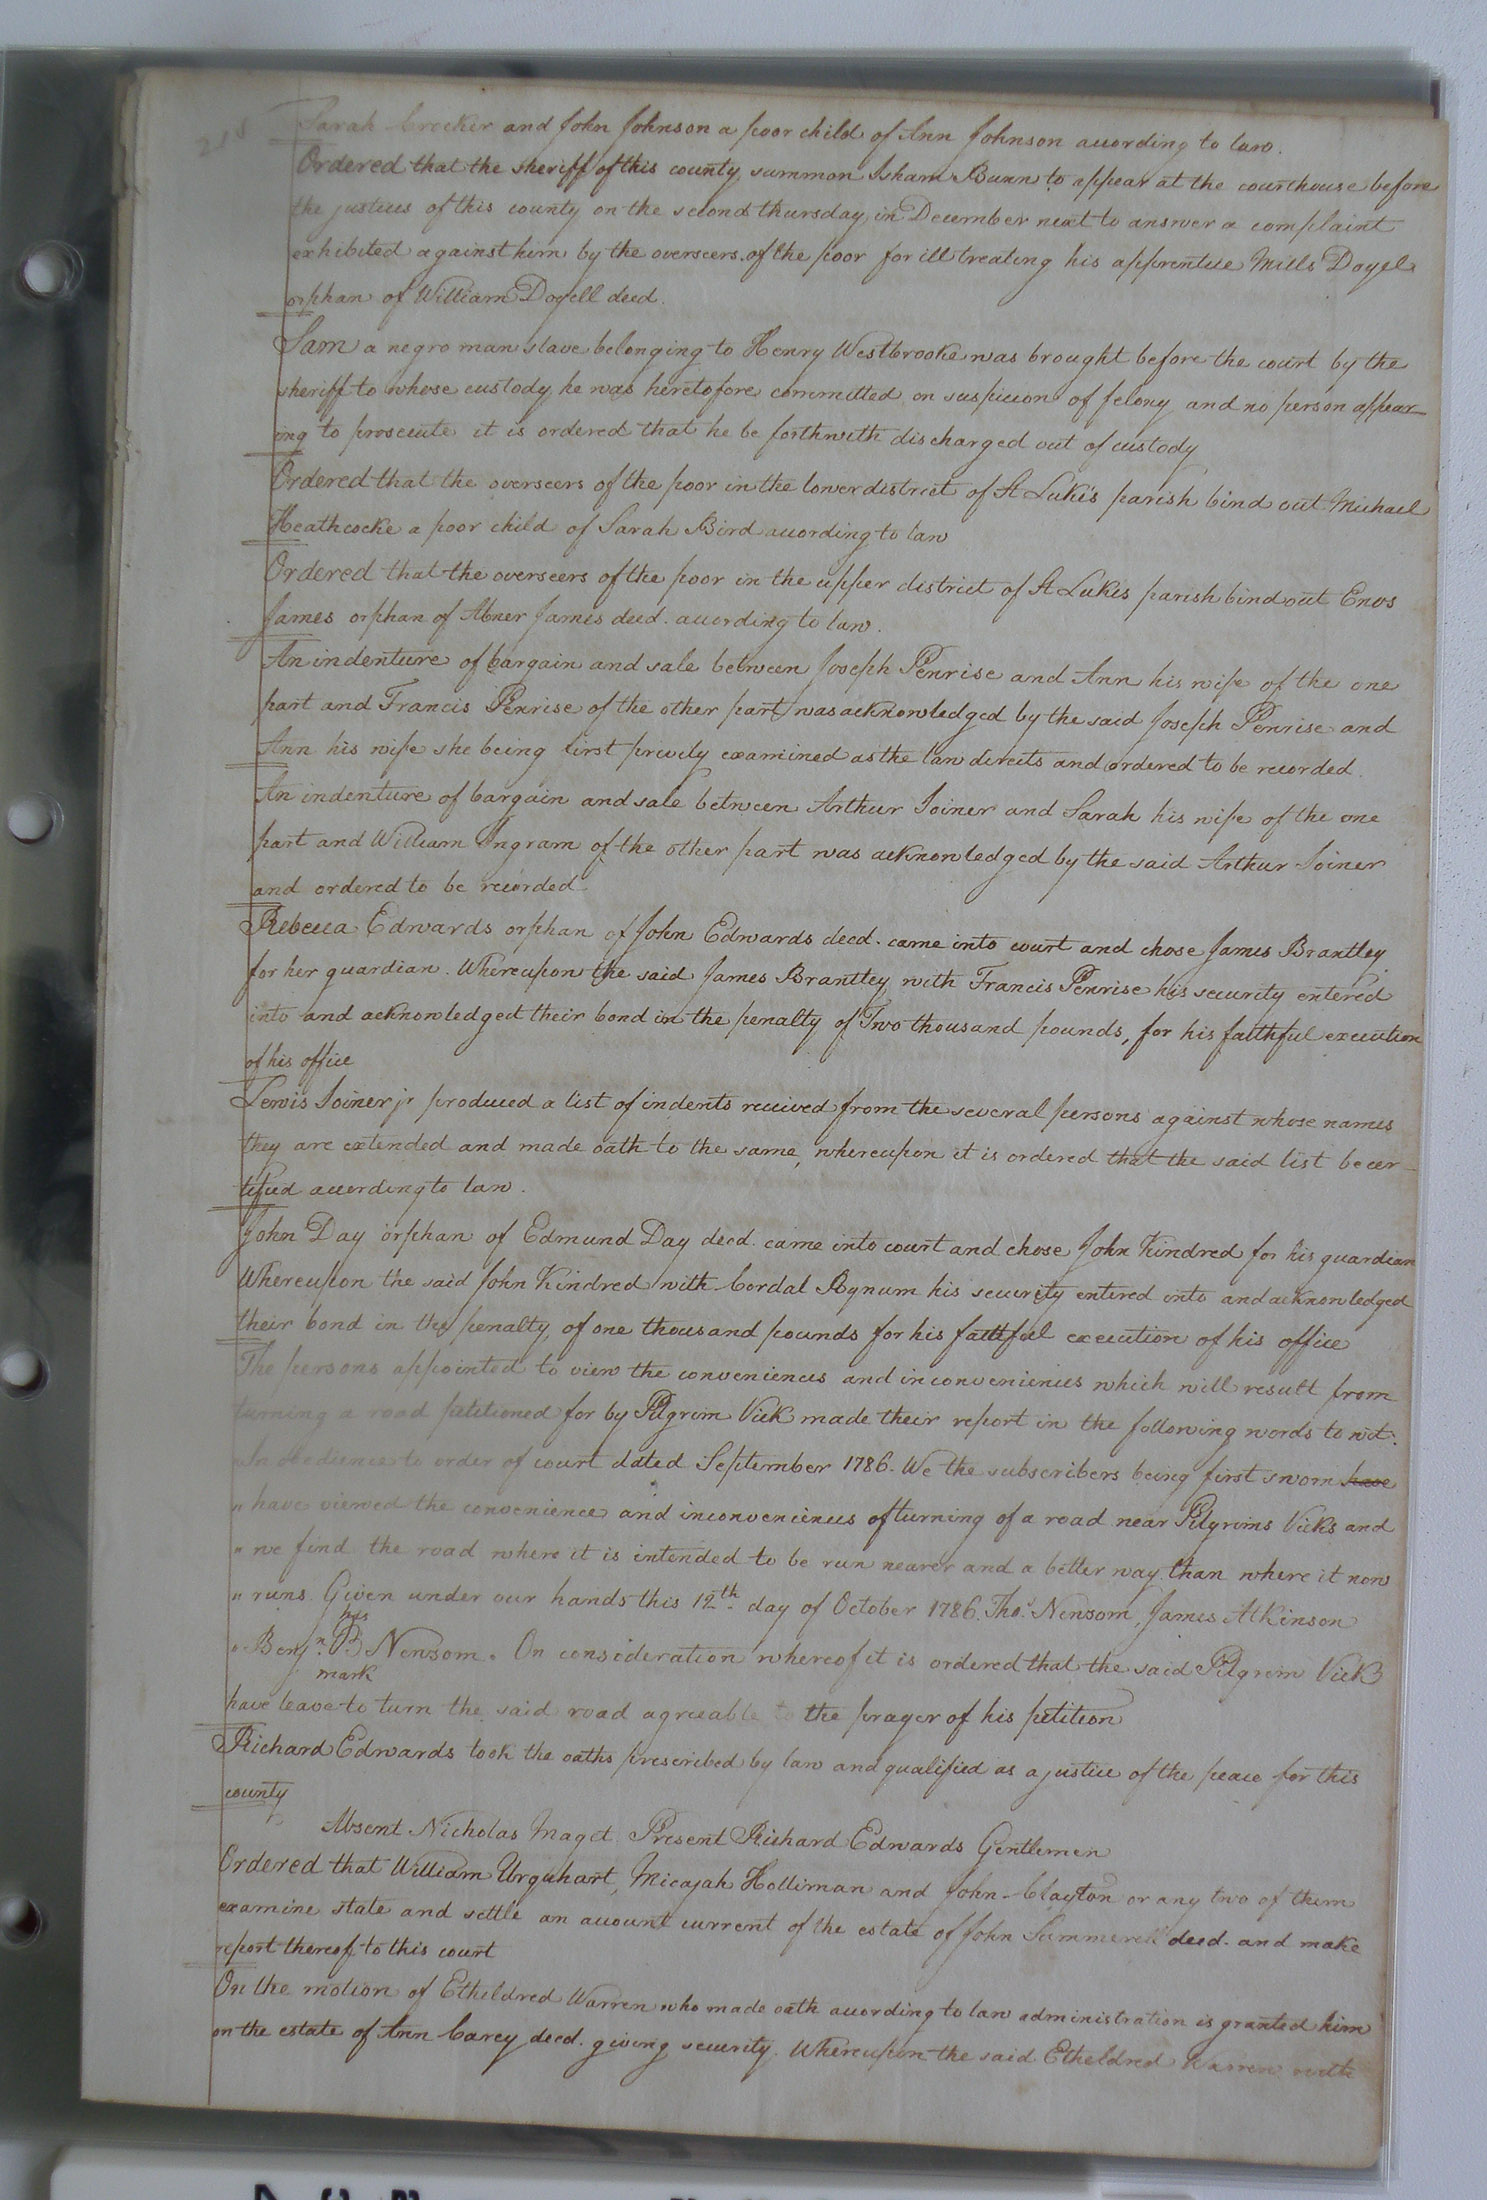 Sarah Crocker and John Johnson a poor child of Ann Johnson according to law.
Ordered that the sheriff of this county summon Isham Bunn to appear at the courthouse before
the justices of this county on the second thursday in December next to answer a complaint
exhibited against him by the overseers of the poor for ill treating his apprentice Mills Doyel
orphan of William Doyell decd.
Sam a negro man slave belonging to Henry Westbrooke was brought before the court by the
sheriff to whose custody he was heretofore committed on suspicion of felony and no person appear
ing to prosecute it is ordered that he be forthwith discharged out of custody
Ordered that the overseers of the poor in the lower district of St Luke's parish bind out Michael
Heathcocke a poor child of Sarah Bird according to law
Ordered that the overseers of the poor in the upper district of St Lukes parish bind out Enos
James orphan of Abner James decd. according to law.
An indenture of bargain and sale between Joseph Penrise and Ann his wife of the one
part and Francis Penrise of the other part was acknowledged by the said Joseph Penrise and
Ann his wife she being first privily examined as the law directs and ordered to be recorded.
An indenture of bargain and sale between Arthur Joiner and Sarah his wife of the one
part and William Ingram of the other part was acknowledged by the said Arthur Joiner
and ordered to be recorded
Rebecca Edwards orphan of John Edwards decd. came into court and chose James Brantley
for her guardian. Whereupon the said James Brantley with Francis Penrise his security entered
into and acknowledged their bond in the penalty of Two thousand pounds, for his faithful execution
of his office
Lewis Joiner jr produced a list of indents received from the several persons against whose names
they are extended and made oath to the same, whereupon it is ordered that the said list be cer-
tified according to law.
John Day orphan of Edmund Day decd. came into court and chose John Kindred for his guardian
Whereupon the said John Kindred with Cordal Bynum his security entered into and acknowledged
their bond in the penalty of one thousand pounds for his faithful execution of his office
The persons appointed to view the conveniences and inconveniencies which will result from
turning a road petitioned for by Pilgrim Vick made their report in the following words to wit:
"In obedience to order of court dated September 1786. We the subscribers being first sworn have
" have viewed the convenience and inconveniences of turning of a road near Pilgrims Vicks and
" we find the road where it is intended to be run nearer and a better way than where it now
" runs. Given under our hands this 12th day of October 1786. Thos. Newsom, James Atkinson
his
" Benjn. B Newsom. On consideration whereof it is ordered that the said Pilgrim Vick
mark
have leave to turn the said road agreeable to the prayer of his petition
Richard Edwards took the oaths prescribed by law and qualified as a justice of the peace for this
county
Absent Nicholas Maget. Present Richard Edwards Gentlemen
Ordered that William Urquhart, Micajah Holliman and John Clayton or any two of them
examine state and settle an account current of the estate of John Summerell decd. and make
report thereof to this court
On the motion of Etheldred Warren who made oath according to law administration is granted him
on the estate of Ann Carey decd. giving security. Whereupon the said Etheldred Warren with